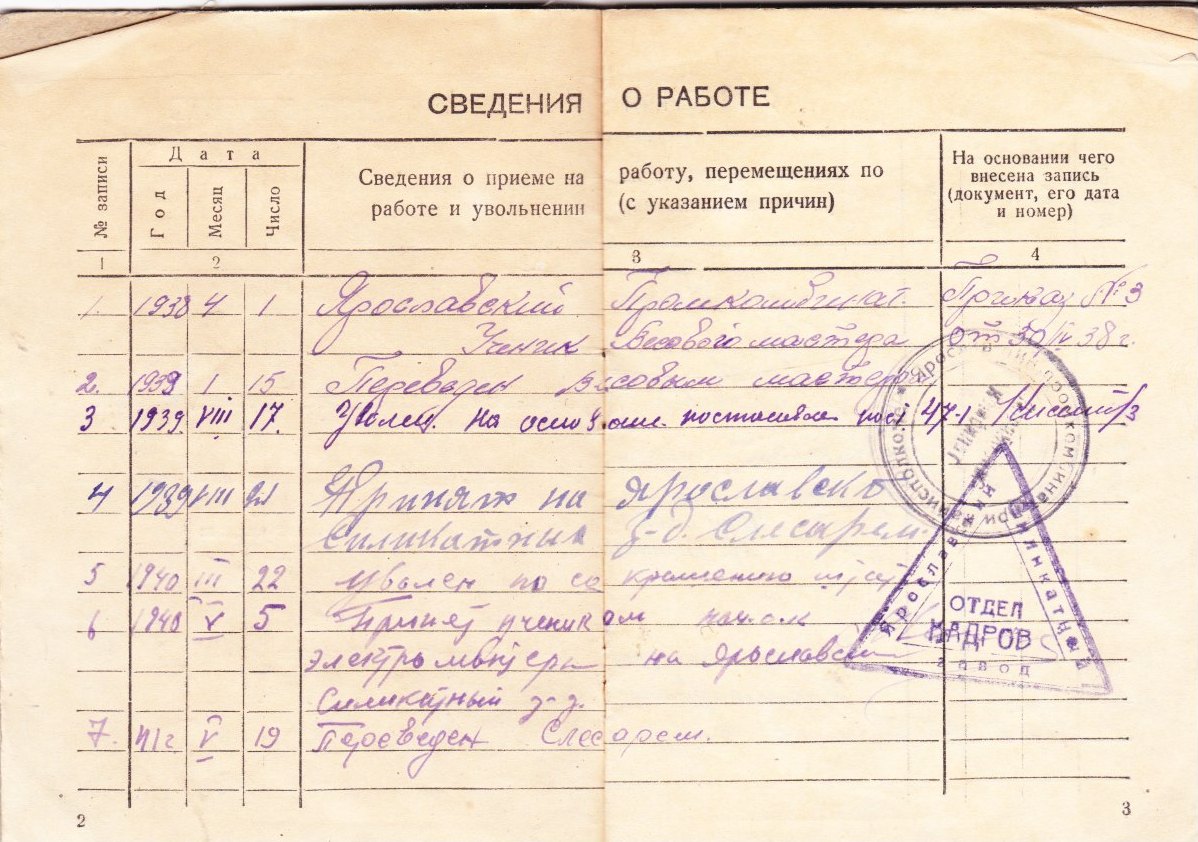 СВЕДЕНИЯ О РАБОТЕ
№ записи
Дата
Год
Месяц
Число
Сведения о приеме на работу, перемещениях по
работе и увольнении (с указанием причин)
На основании чего
внесена запись
(документ, его дата
и номер)
1 2 3 4
1. 1938 4 1 Ярославский Промкомбинат. Приказ № 3
Ученик Весового мастера от 30/IV 38 г.
2. 1939 I 15 Переведен Весовым мастером
3 1939 VIII 17. Уволен. на 47-1
4 1939 VIII 21 Принят на Ярославско
Силикатный з-д. Слесарем
5 1940 III 22 Уволен по сокращению
6 1940 V 5 Принят учеником
электромонтера на Ярославский
Силикатный з-д.
7. 41 г V 19 Переведен Слесарем.
Ярославский Силикатный
ОТДЕЛ
КАДРОВ
завод
2
3